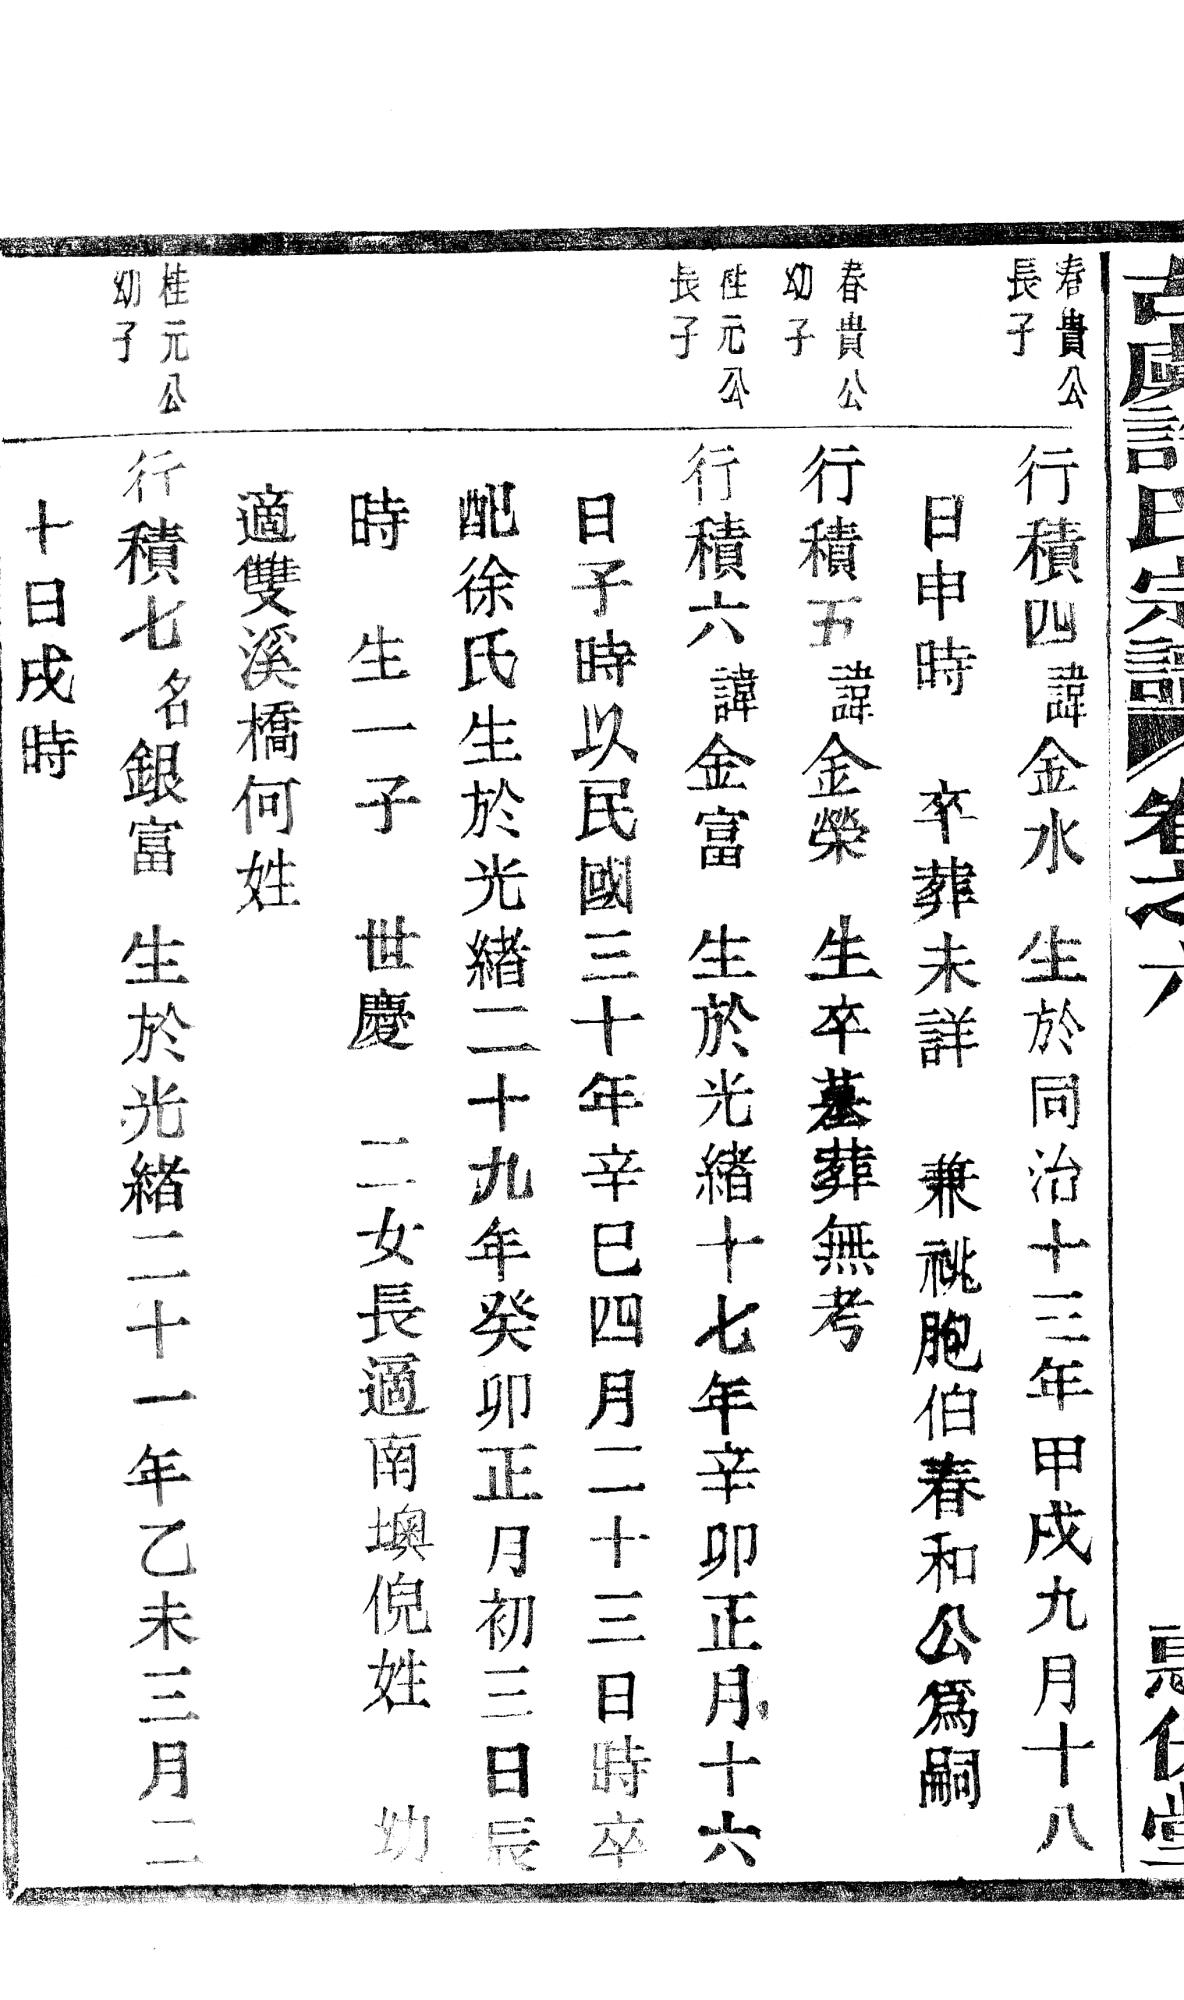 古虞許氏宗譜 卷之六
春貴公
長子
行積四諱金水 生於同治十三年甲戌九月十八
日申時 卒葬未詳 兼祧胞伯春和公爲嗣
春貴公
幼子
行積五諱金榮 生卒墓葬無考
桂元公
長子
行積六諱金富 生於光緒十七年辛卯正月十六
日子時以民國三十年辛巳四月二十三日時卒
配徐氏生於光緒二十九年癸卯正月初三日辰
時 生一子 世慶 二女長適南墺倪姓 幼
適雙溪橋何姓
桂元公
幼子
行積七名銀富 生於光緒二十一年乙未三月二
十日戌時